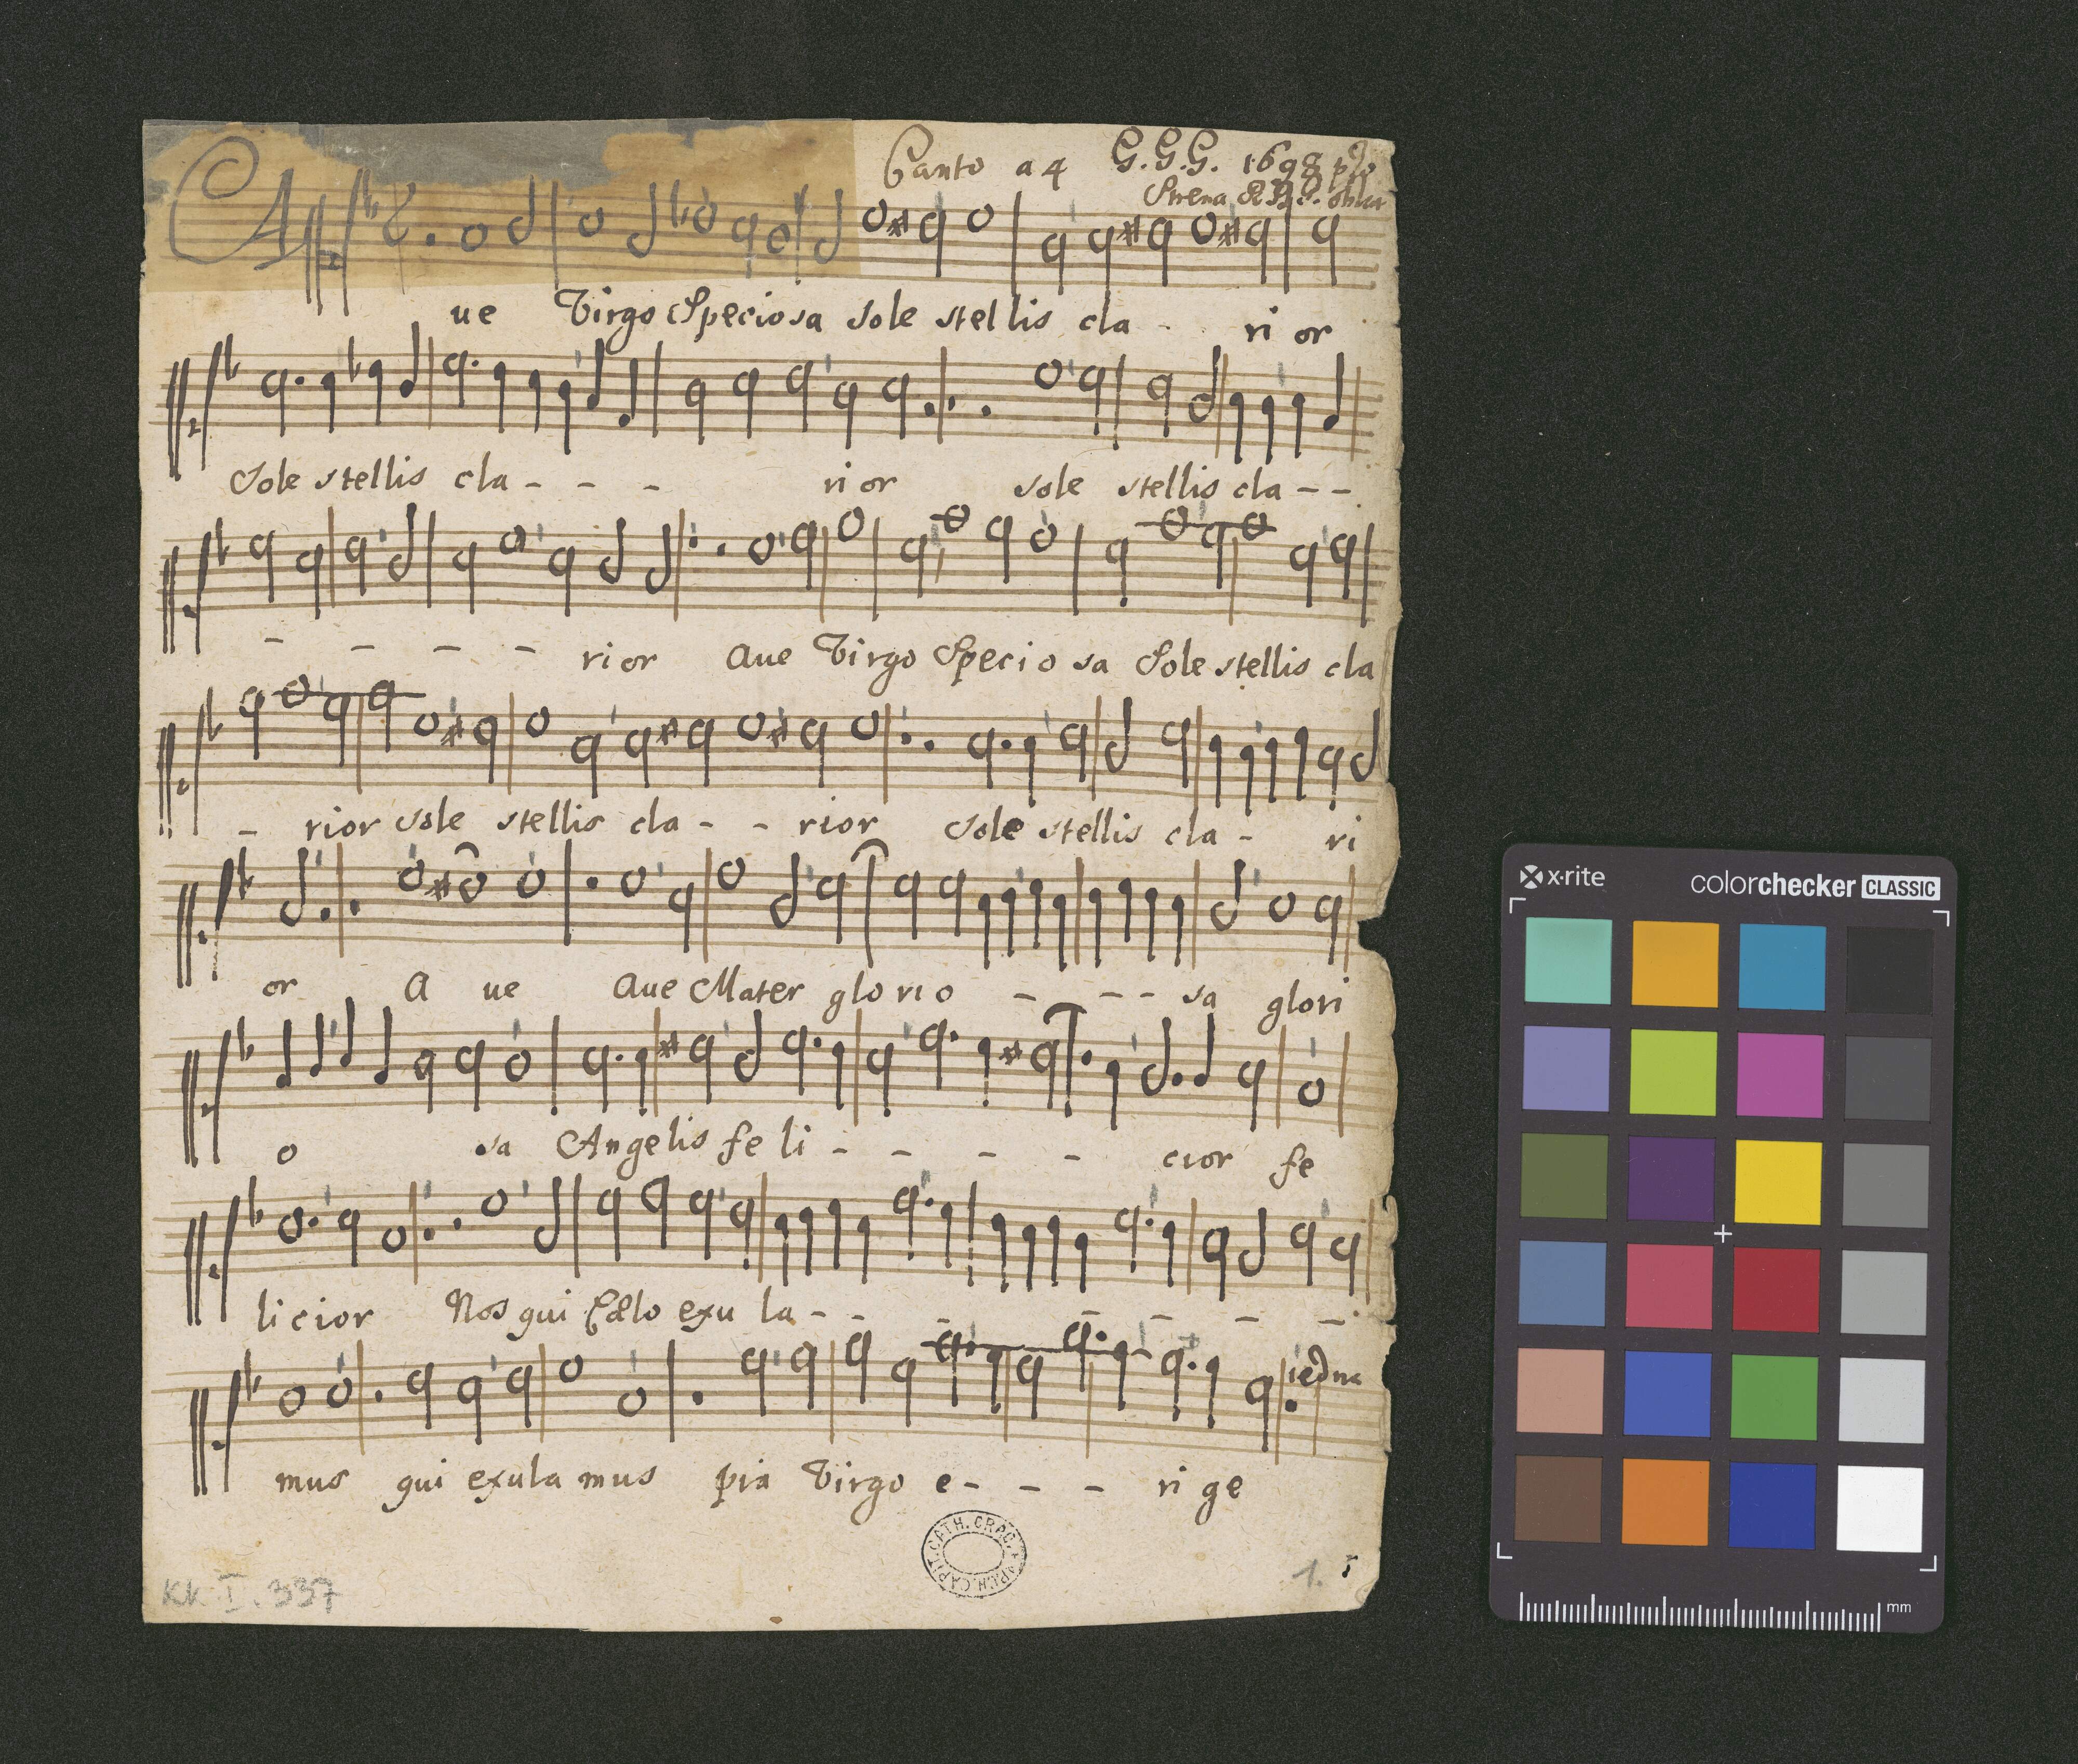 Canto a 4 G.G.G. 1698 pro
Strena
A ue Virgo Speciosa sole stellis cla - - ri or
Sole stellis cla - - - ri or sole stellis cla - -
- - - - rior Aue Virgo Specio sa Sole stellis cla
- rior sole stellis cla - - rior sole stellis cla - ri
or A ue Aue Mater glo ri o - - - sa glori
o sa Angelis fe li - - - - cior fe
licior Nos qui Cælo exu la - - - - - - -
iedna
mus qui exula mus pia Virgo e - - - ri ge
CAPIT. CATH. CRAC. ARCH.
KK I. 337
1.
x·rite
colorchecker CLASSIC
mm